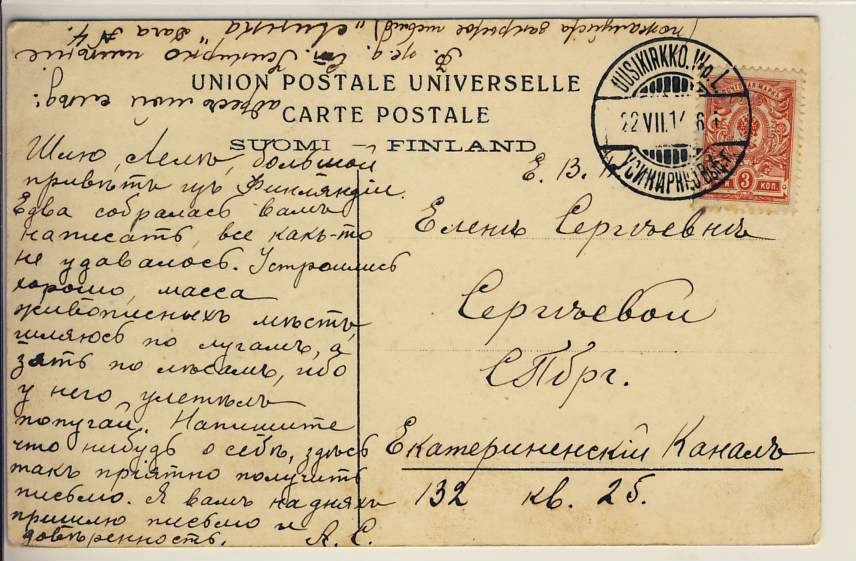 UNION POSTALE UNIVERSELLE
CARTE POSTALE
SUOMI – FINLAND
UUSIKIRKKO. W.L.
22.VII.14. 6
УСИКИРКО
3 КОП.
Шлю, Лелѣ, большой
привѣтъ изъ Финляндіи.
Едва собралась вамъ
написать, все какъ-то
не удавалось. Устроились
хорошо, масса
живописныхъ мѣстъ,
шляюсь по лугамъ, а
зять по лѣсамъ, ибо
у него улетѣлъ
попугай. Напишите
что нибудь о себѣ, здѣсь
такъ пріятно получить
письмо. Я вамъ на дняхъ
пришлю письмо и
довѣренность. А. С.
адресъ мой слѣд:
Ф. ж.д. Ст. Усикирко имѣніе
дача № 4.
(пожалуйста закрытое письмо)
Е. В.
Еленѣ Сергѣевнѣ
Сергѣевой
СПбрг.
Екатериненскій Каналъ
132 кв. 25.